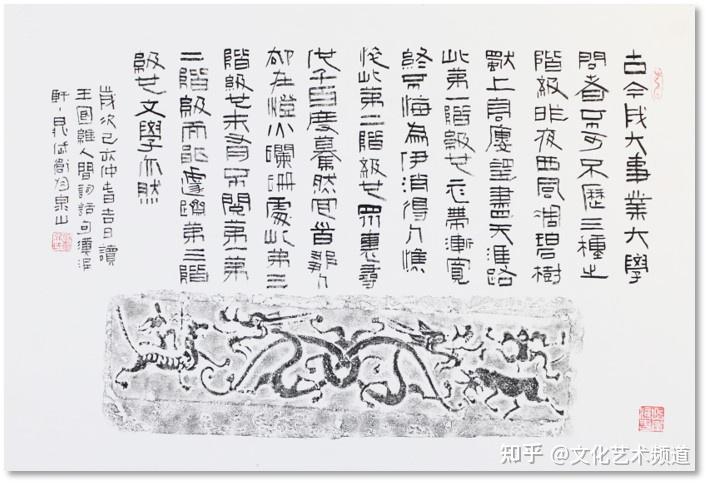 古今成大事業大學
問者不可不歷三種之
階級昨夜西風凋碧樹
獨上高樓望盡天涯路
此第一階級也衣帶漸寬
終不悔為伊消得人憔
悴此第二階級也眾裏尋
他千百度驀然回首那人
却在燈火瀾珊處此第三
階級也未有不閱第一第
二階級而能遽躋第三階
級也文學亦然
歲次己亥仲春吉日讀
王國維人間詞話句漢涯
軒晁岱衛於泉山
知乎 @文化艺术频道